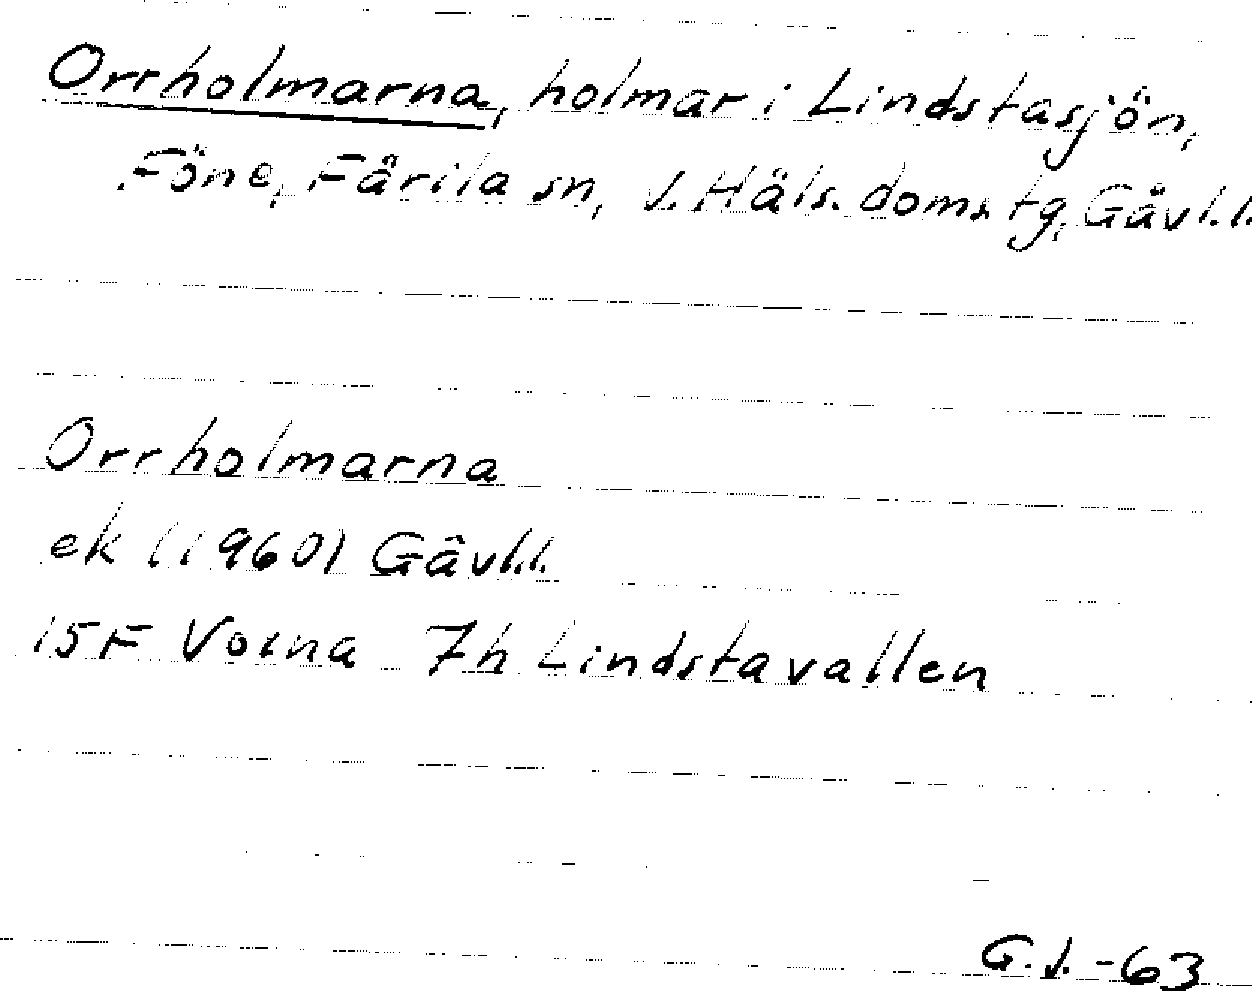 Orrholmarna, holmar i Lindstasjön,
Föne, Färila sn, V. Häls. doms. tg, Gävl. l.
Orrholmarna
ek (1960) Gävl.l.
15F Voxna 7h Lindstavallen
G.J. -63